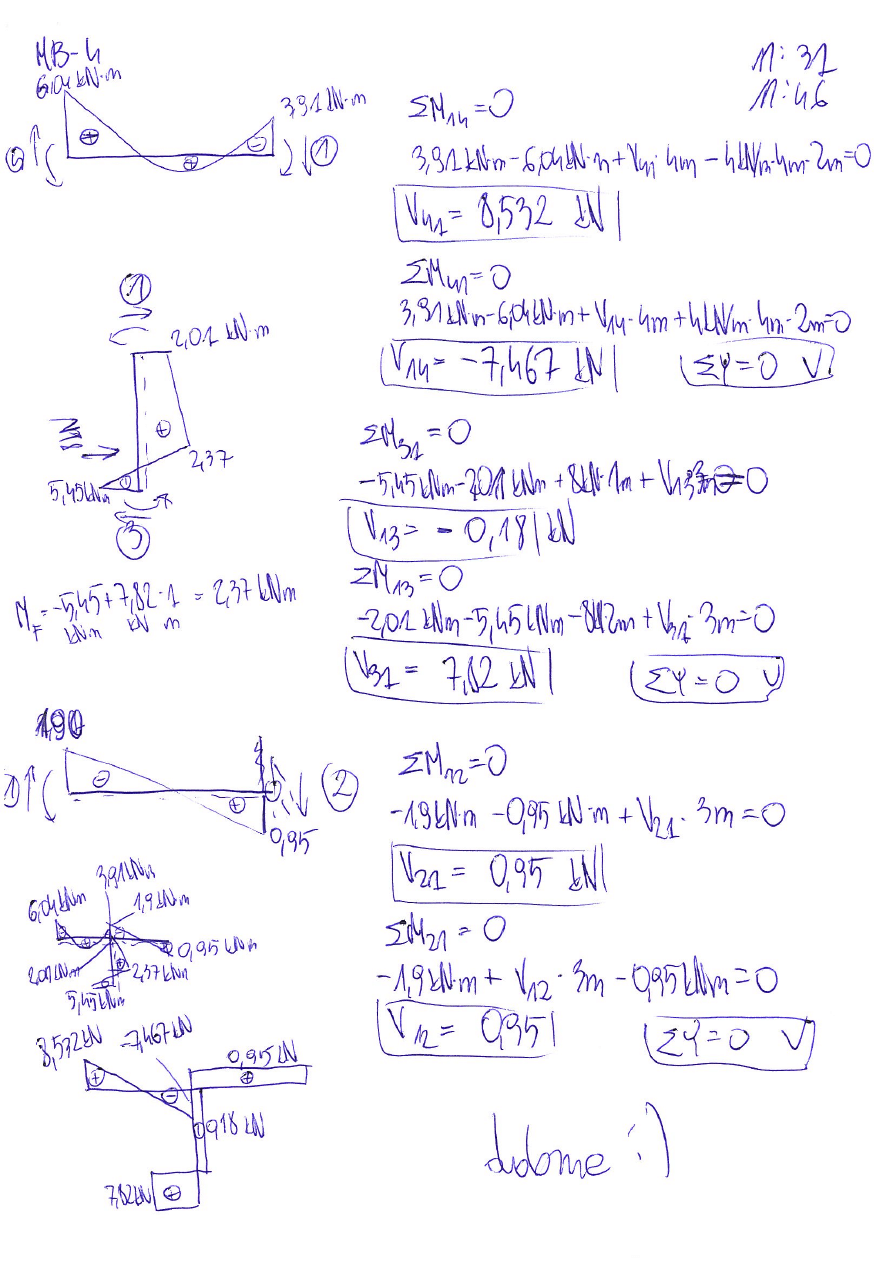 MB-4
11:31
11:46
6,04 kN·m
3,91 kN·m
4
1
ΣM14=0
3,91kN·m-6,04kN·m+V41·4m-4kN/m·4m·2m=0
V41= 8,532 kN
ΣM41=0
3,91kN·m-6,04kN·m+V14·4m+4kN/m·4m·2m=0
V14= -7,467 kN
ΣY=0 V
1
2,01 kN·m
2,37
5,45kNm
3
ΣM31=0
-5,45kNm-2,01kNm+8kN·1m+V13·3m=0
V13= -0,18 kN
ΣM13=0
-2,01kNm-5,45kNm-8·2m+V31·3m=0
V31= 7,82 kN
ΣY=0 V
MF=-5,45+7,82·1=2,37kNm
kNm kN m
190
1
2
0,95
ΣM12=0
-1,9kN·m-0,95kN·m+V21·3m=0
V21= 0,95 kN
ΣM21=0
-1,9kN·m+V12·3m-0,95kNm=0
V12= 0,95
ΣY=0 V
3,91kNm
6,04kNm
1,9kN·m
0,95kNm
2,01kNm
2,37kNm
5,45kNm
8,532kN
-7,467kN
0,95kN
0,18kN
7,82kN
:)